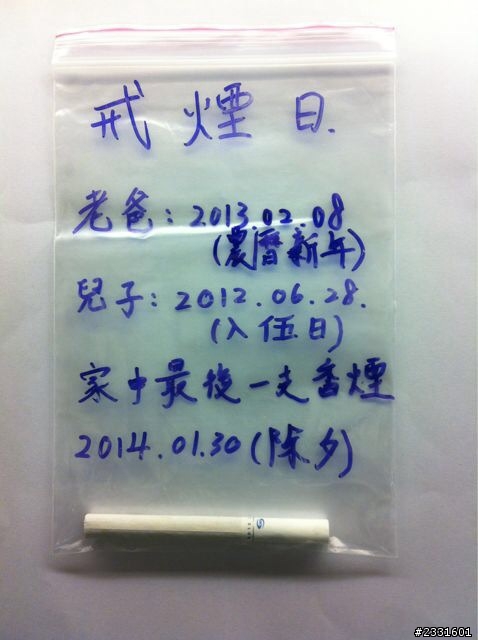 戒煙日.
老爸：2013.02.08
(農曆新年)
兒子：2012.06.28.
(入伍日)
家中最後一支香煙
2014.01.30(除夕)
#2331601